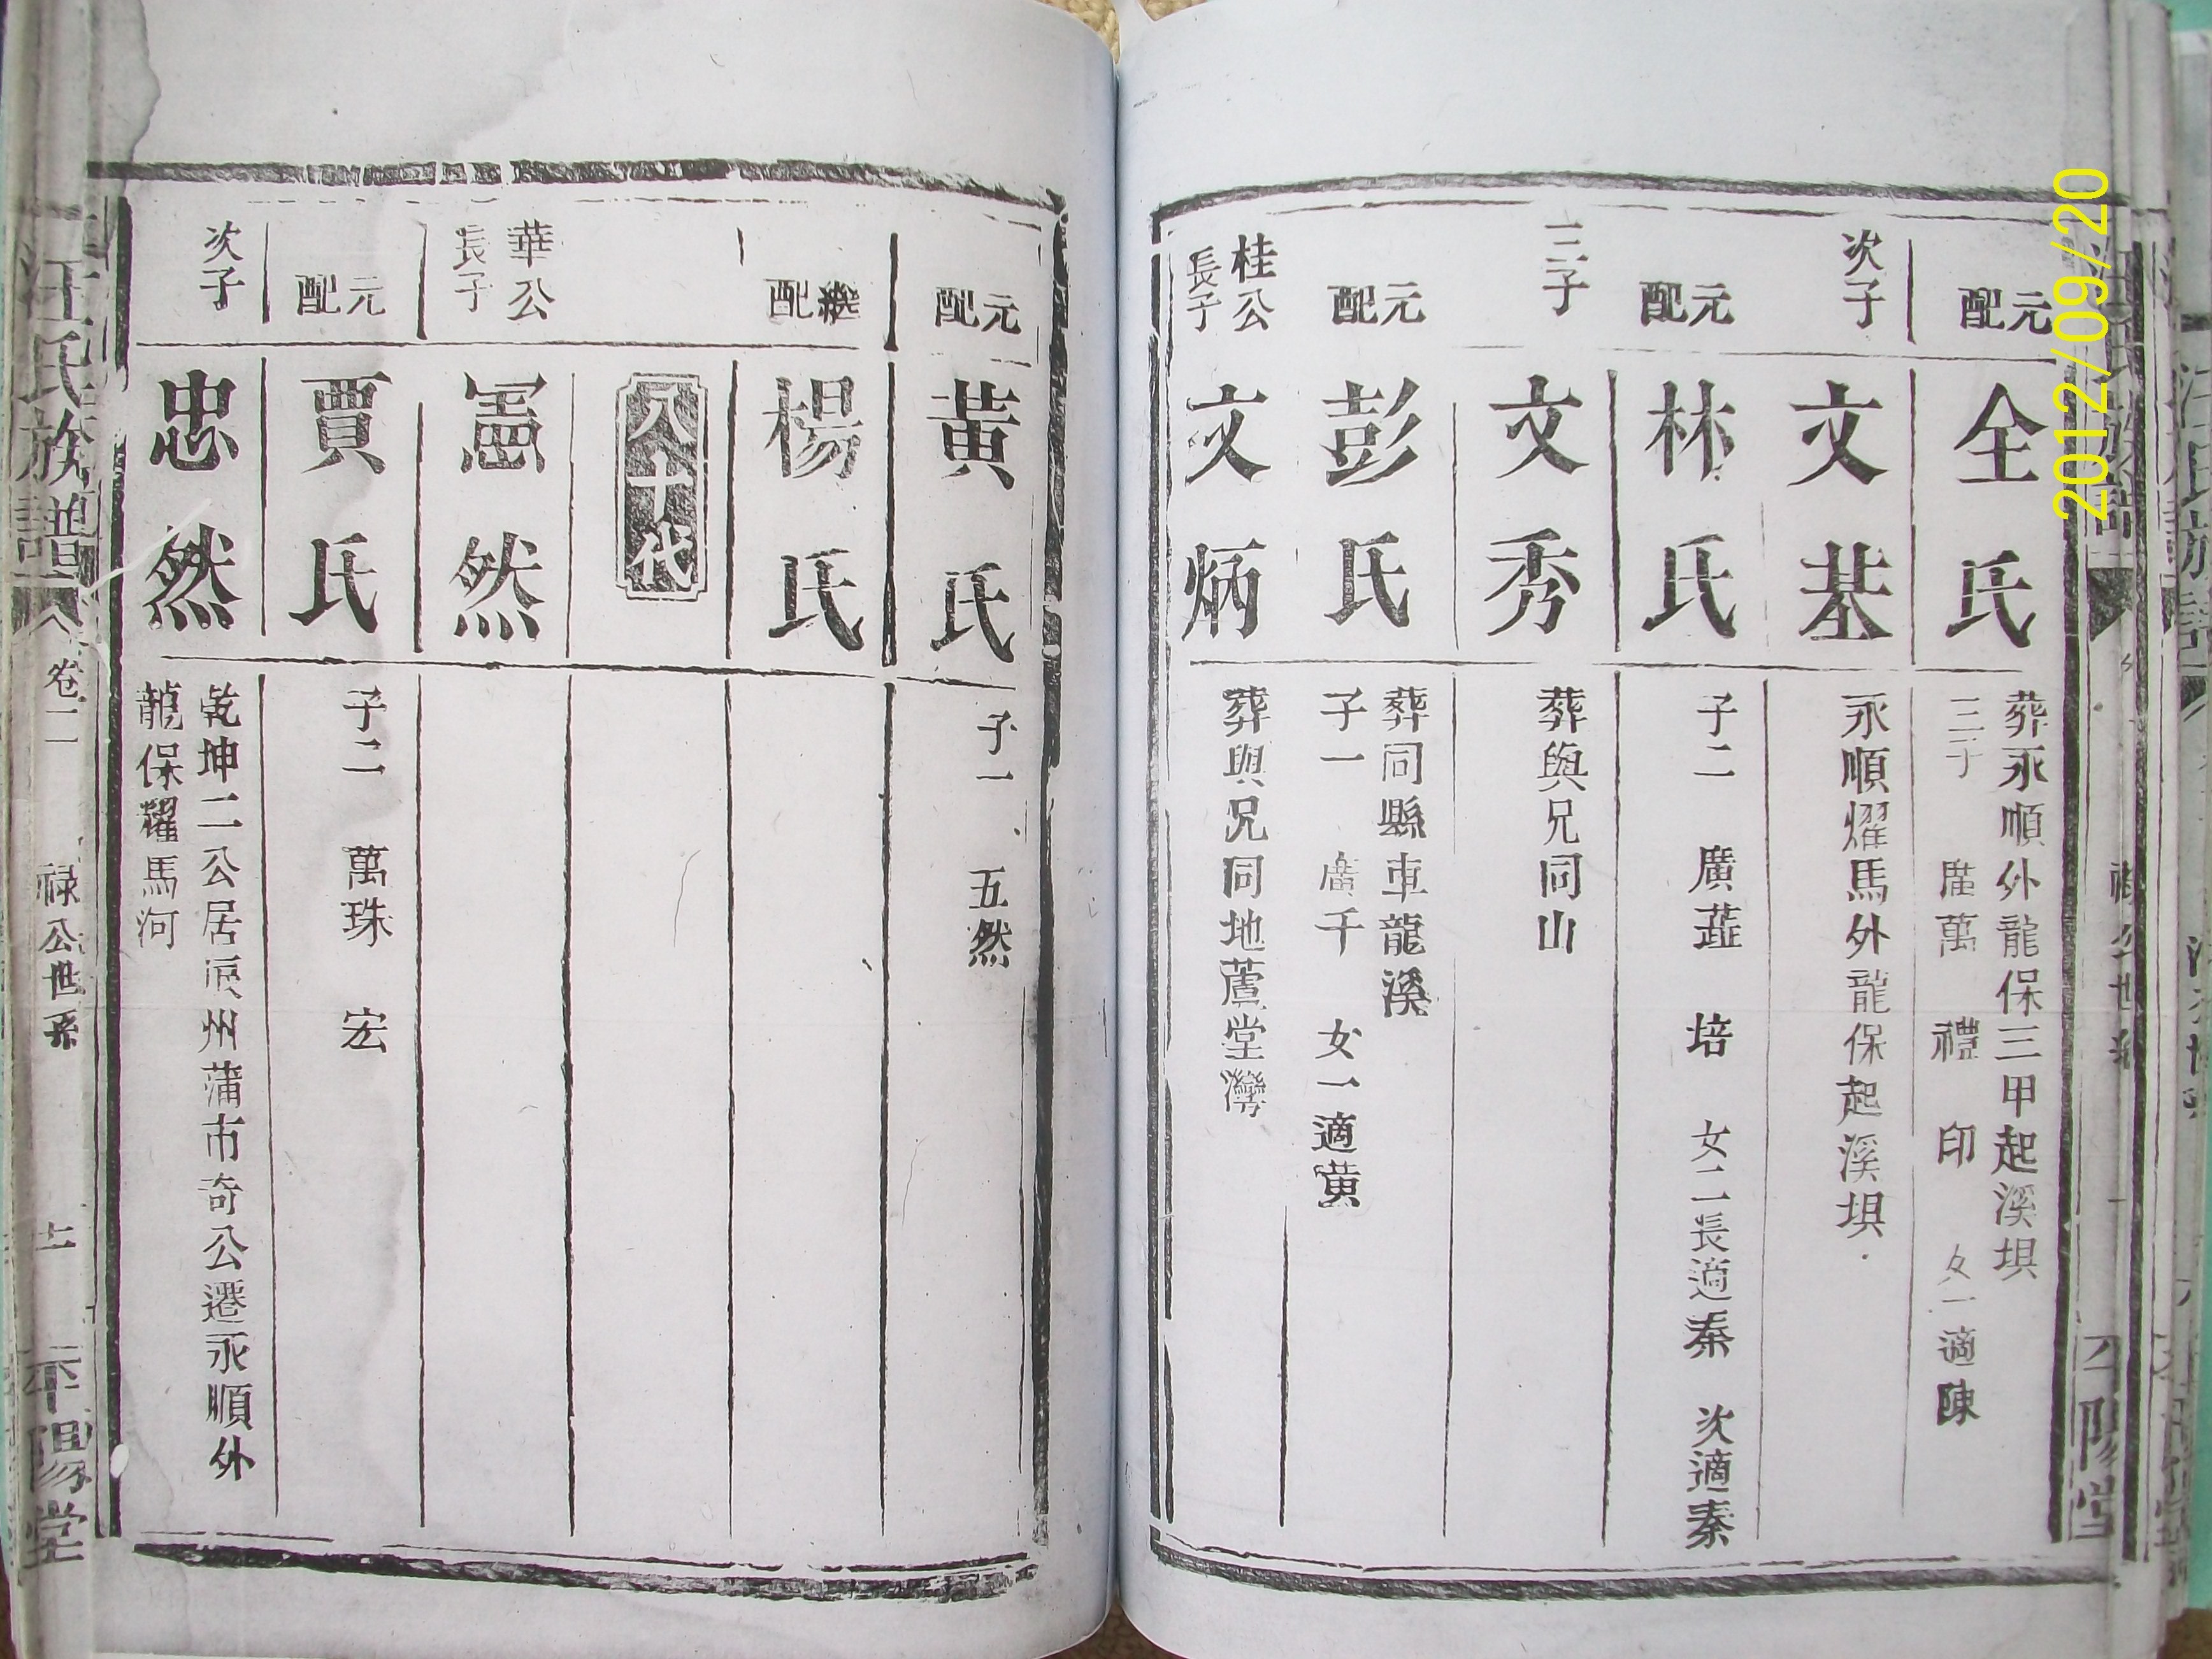 元配
全氏
葬永順外龍保三甲起溪垻
三子 廣萬 禮 印 女一適陳
次子
文基
永順燿馬外龍保起溪垻
元配
林氏
子二 廣蘁 培 女二長適秦 次適秦
三子
文秀
葬與兄同山
元配
彭氏
葬同縣車龍溪
子一 廣千 女一適黄
桂公
長子
文炳
葬與兄同地蘆堂灣
元配
黄氏
子一 五然
繼配
楊氏
八十代
華公
長子
憲然
元配
賈氏
子二 萬珠 宏
次子
忠然
乾坤二公居辰州蒲市奇公遷永順外
龍保耀馬河
汪氏族譜
卷二
禄公世系
平陽堂
2012/09/20